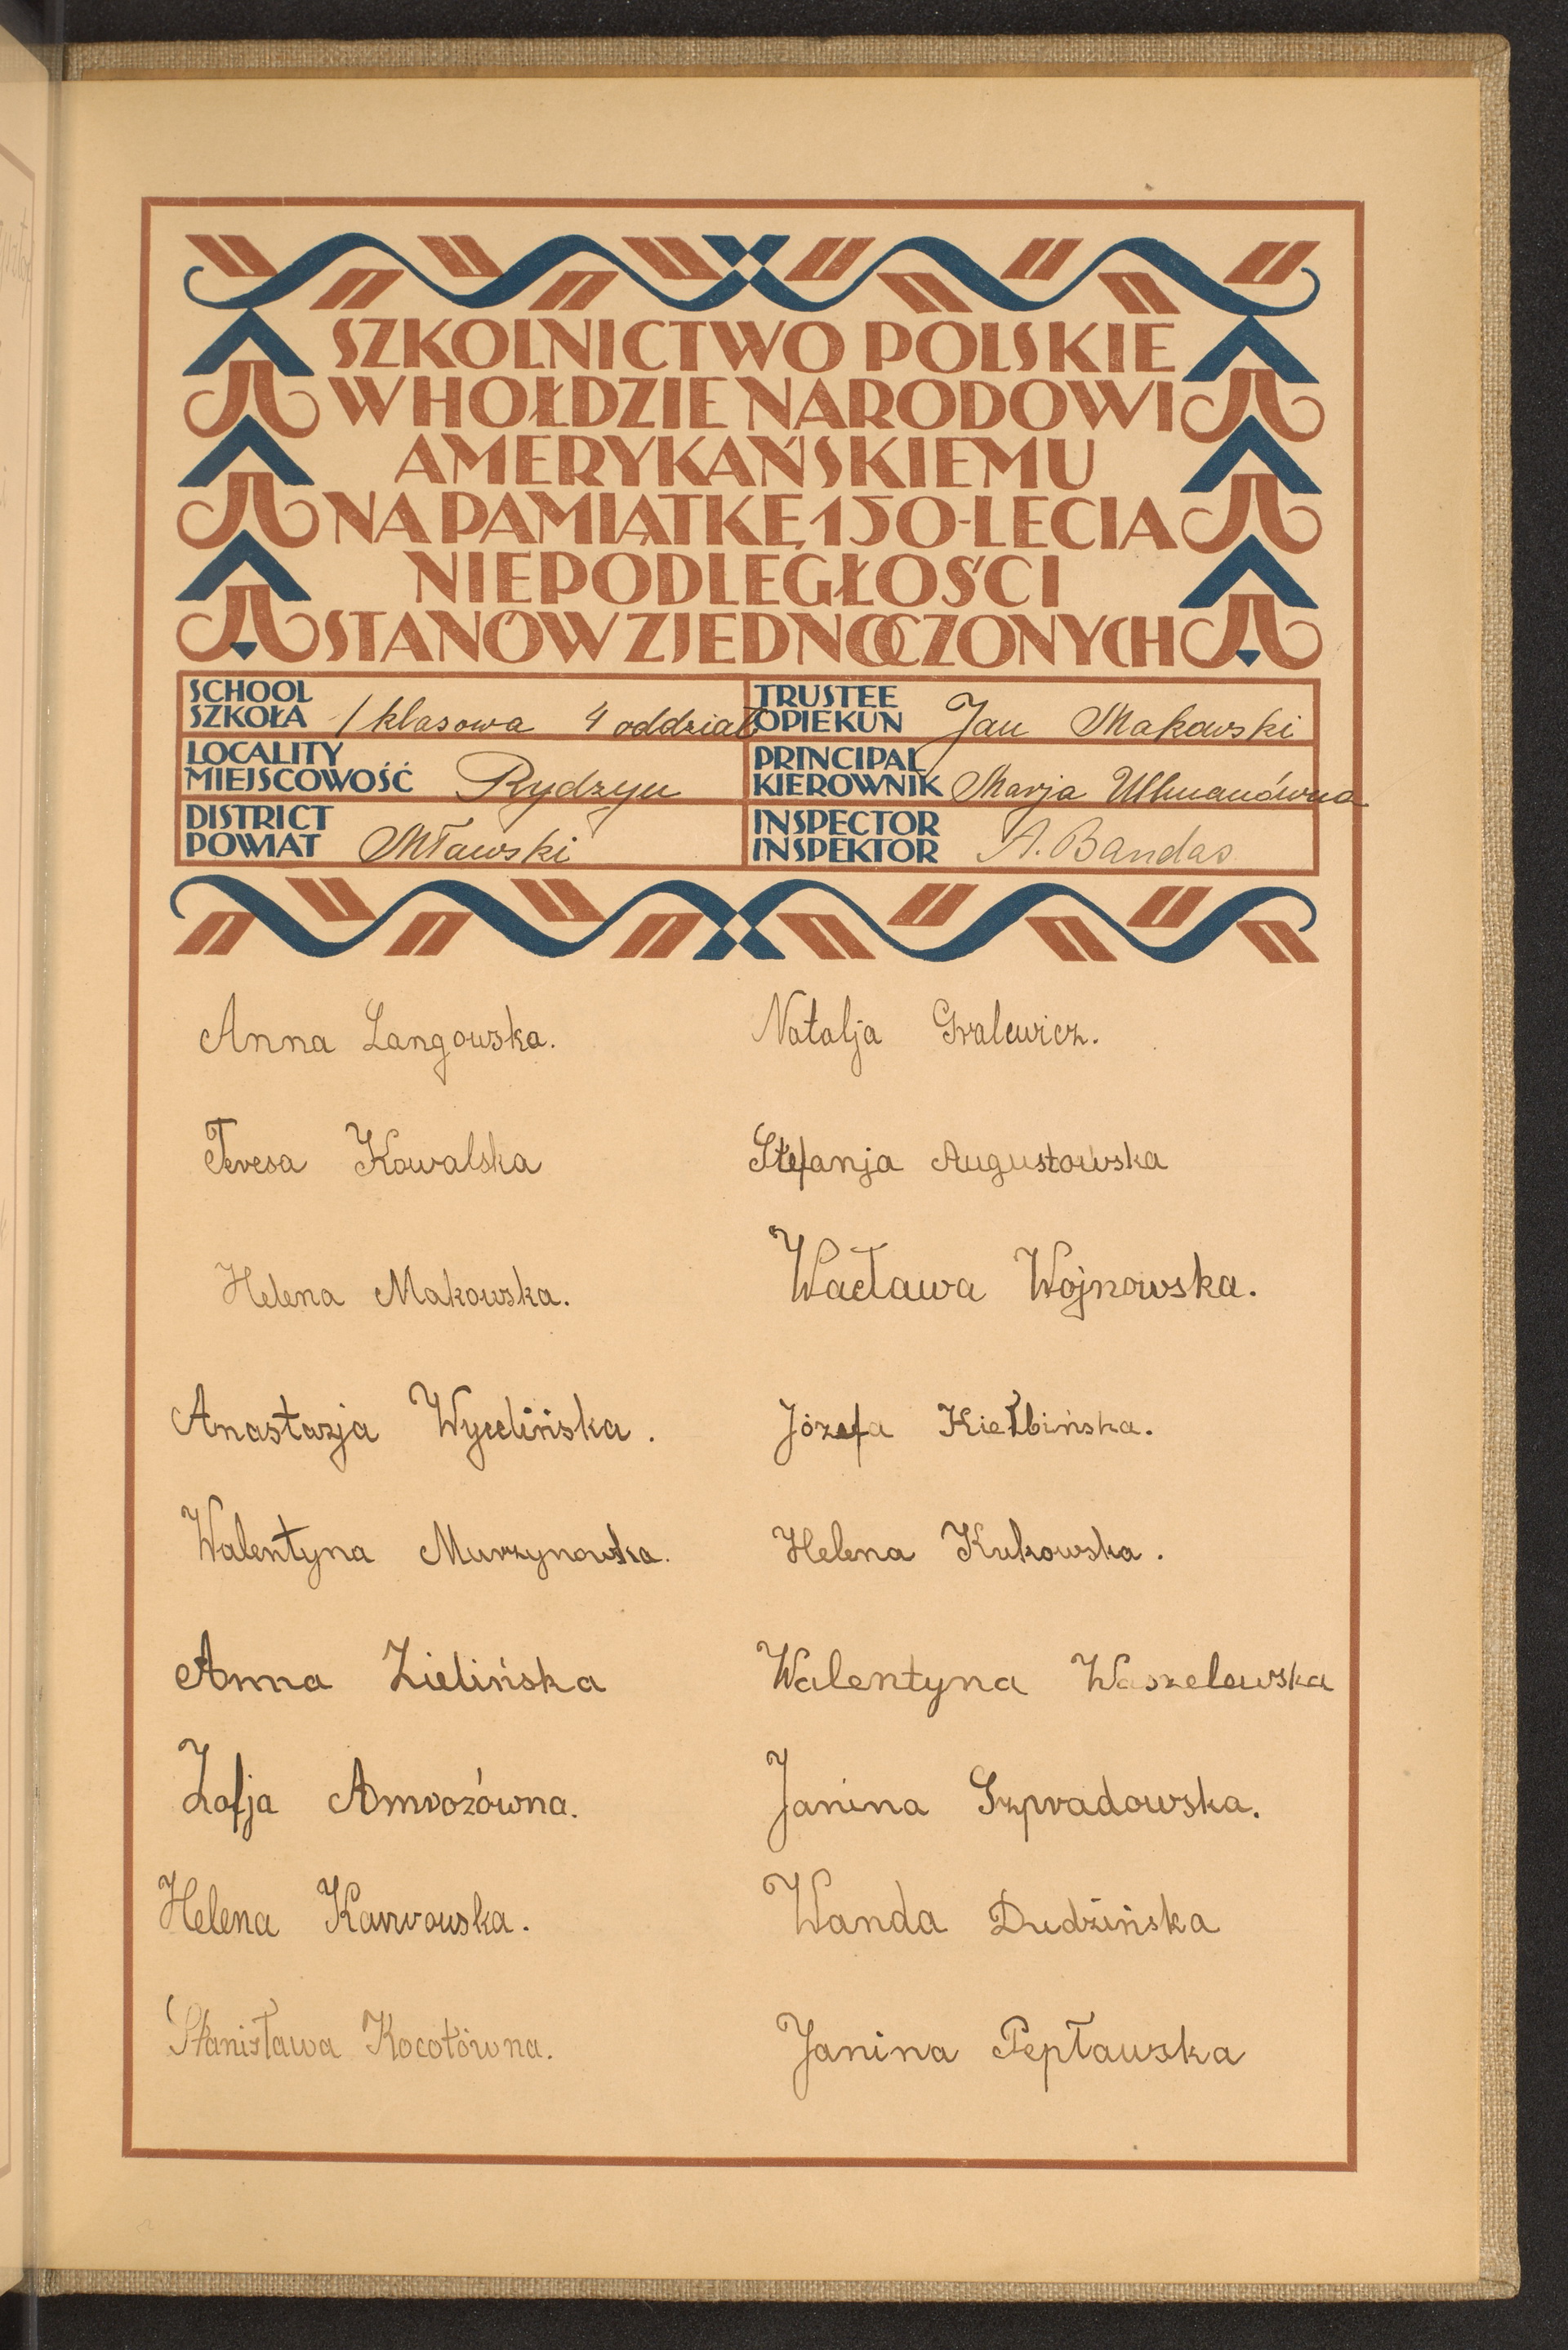 SZKOLNICTWO POLSKIE
W HOŁDZIE NARODOWI
AMERYKAŃSKIEMU
NA PAMIĄTKĘ 150-LECIA
NIEPODLEGŁOŚCI
STANÓW ZJEDNOCZONYCH
SCHOOL
SZKOŁA 1 klasowa 4 oddział
TRUSTEE
OPIEKUN Jan Makowski
LOCALITY
MIEJSCOWOŚĆ Rydzyn
PRINCIPAL
KIEROWNIK Marja Ullmanówna
DISTRICT
POWIAT Mławski
INSPECTOR
INSPEKTOR A. Bandas
Anna Langowska.
Natalja Gralewicz.
Teresa Kowalska
Stefanja Augustowska
Helena Makowska.
Wacława Wojnowska.
Anastazja
Józefa Kiełbińska.
Walentyna Murzynowska.
Helena Kukowska.
Anna Zielińska
Walentyna Waszelewska
Zofja Amrozówna.
Janina Szpradowska.
Helena Karwowska.
Wanda Dudzińska
Stanisława Kocotówna.
Janina Pepławska